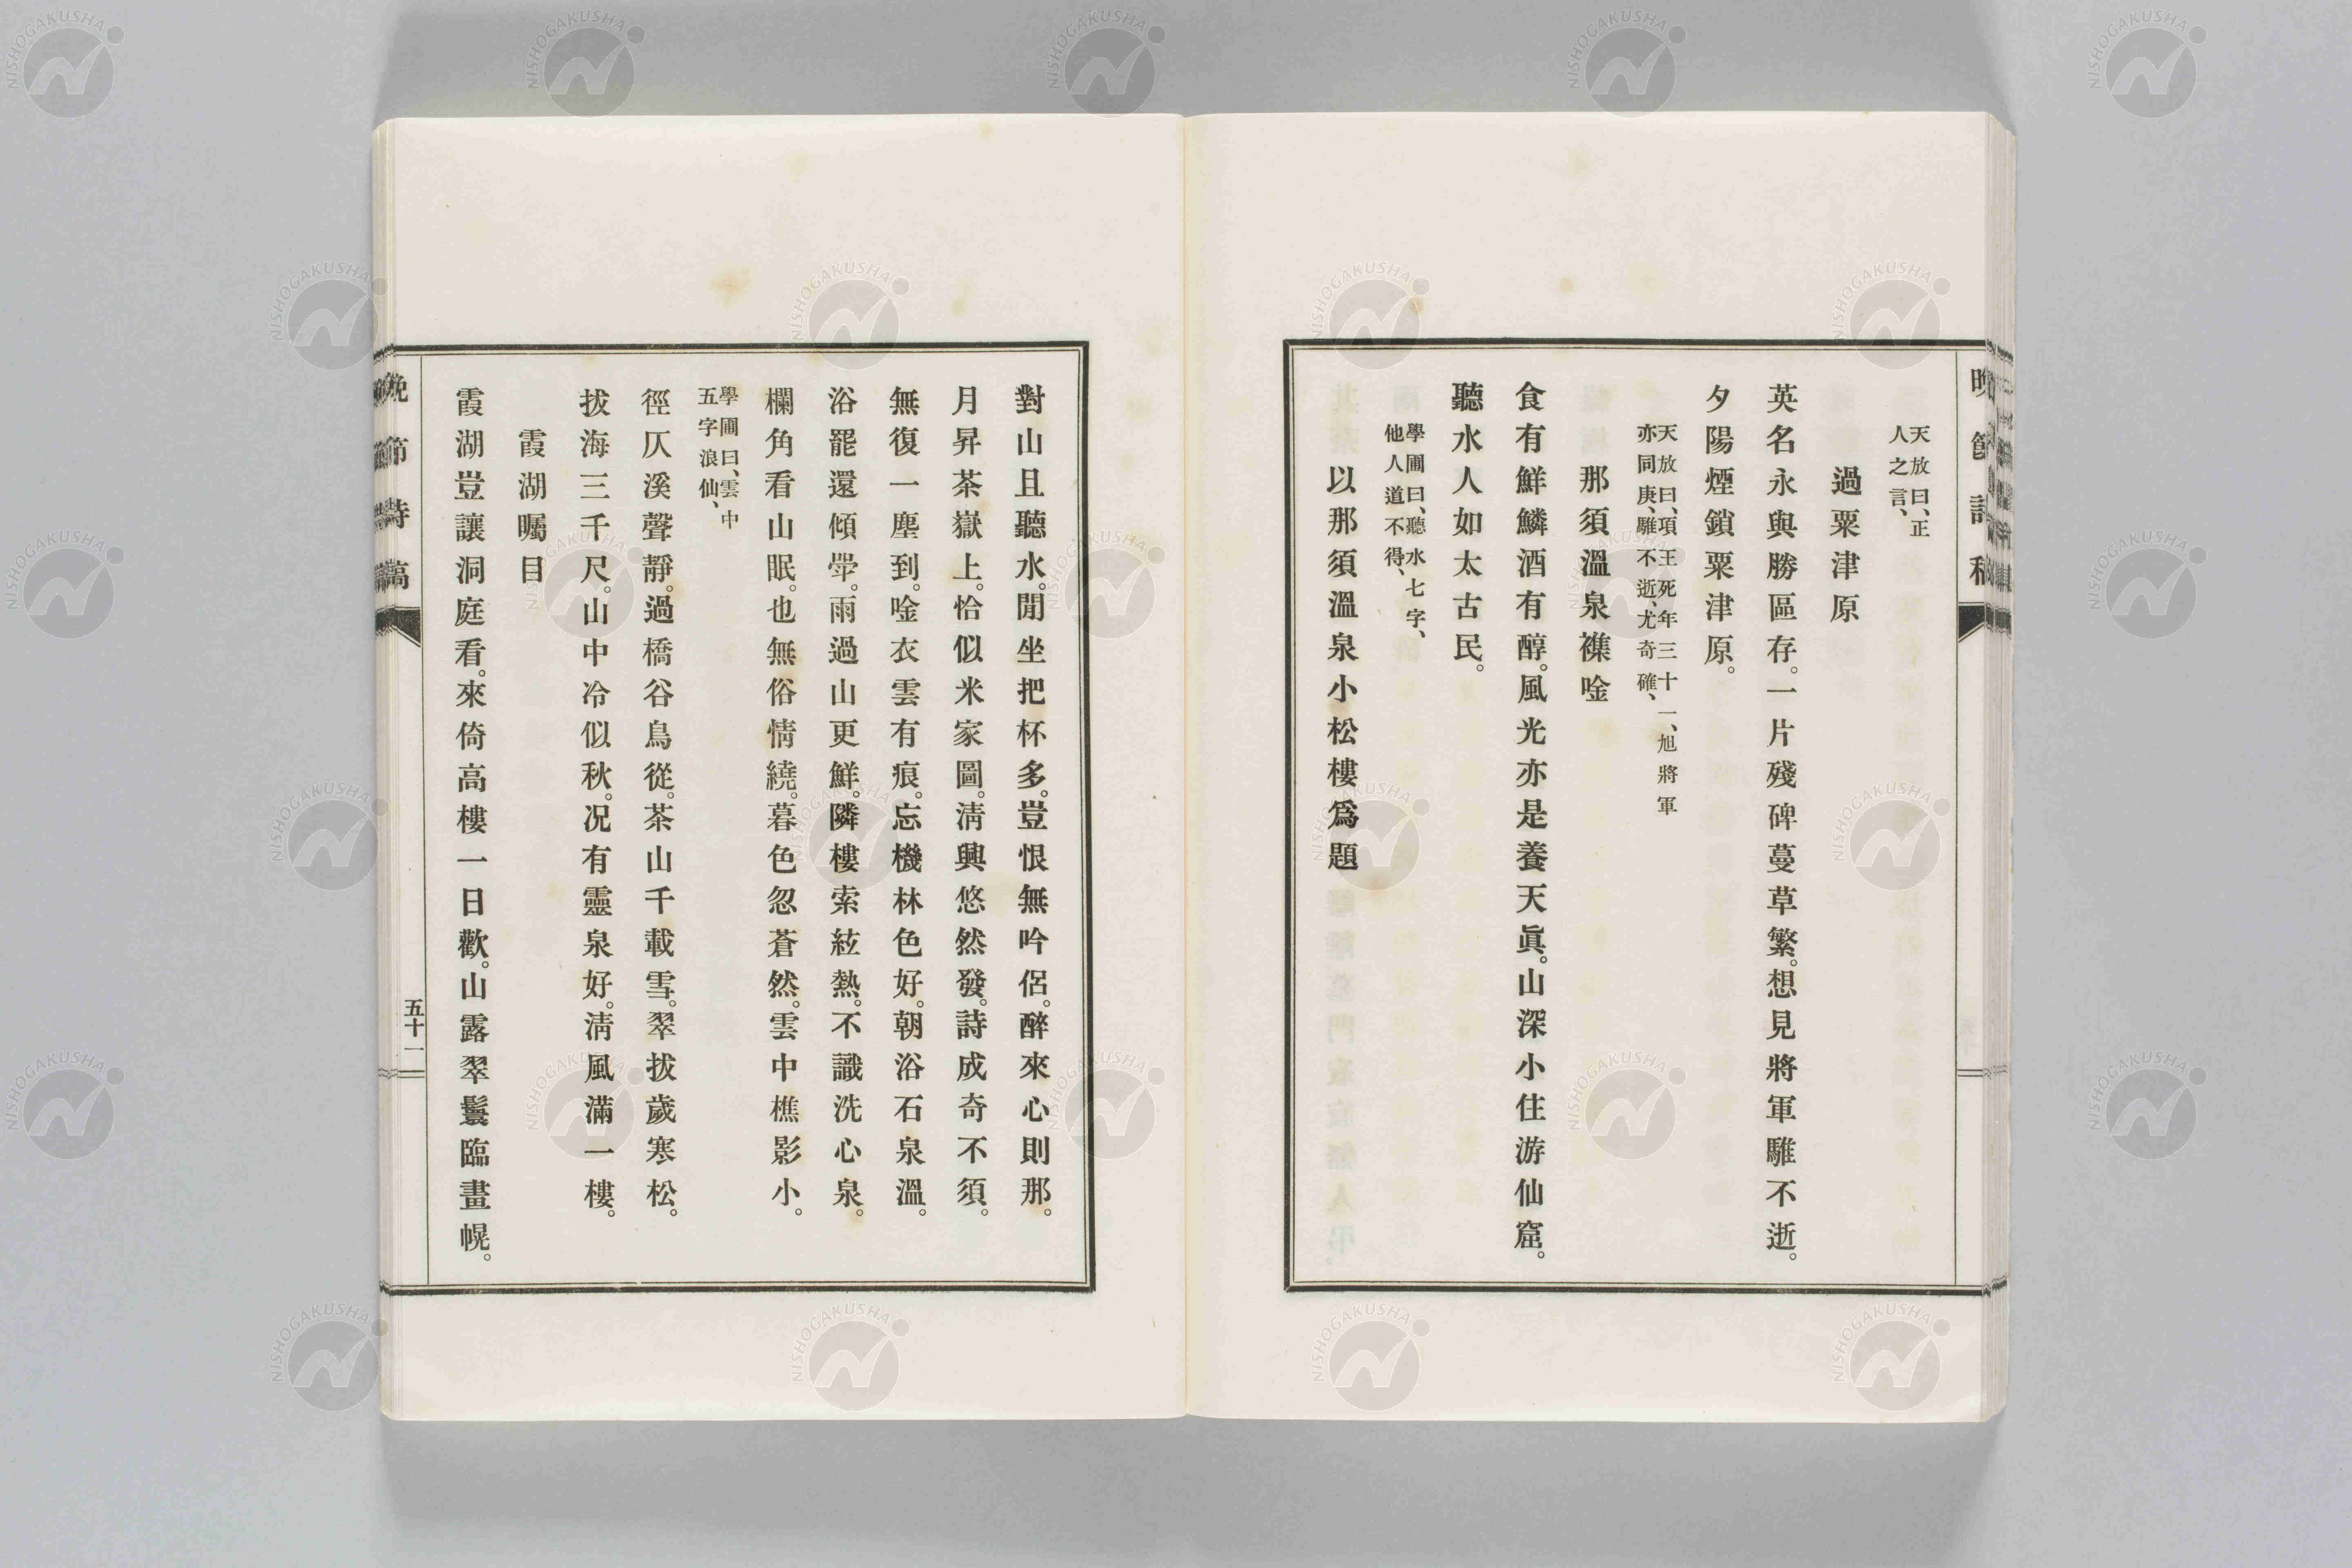 天放曰、正
人之言、
過粟津原
英名永與勝區存。一片殘碑蔓草繁。想見將軍騅不逝。
夕陽煙鎖粟津原。
天放曰、項王死年三十一、旭將軍
亦同庚、騅不逝、尤奇確、
那須溫泉襍唫
食有鮮鱗酒有醇。風光亦是養天眞。山深小住游仙窟。
聽水人如太古民。
學圃曰、聽水七字、
他人道不得、
以那須溫泉小松樓爲題
對山且聽水。閒坐把杯多。豈恨無吟侶。醉來心則那。
月昇茶嶽上。恰似米家圖。淸興悠然發。詩成奇不須。
無復一塵到。唫衣雲有痕。忘機林色好。朝浴石泉溫。
浴罷還傾斝。雨過山更鮮。隣樓索絃熱。不識洗心泉。
欄角看山眠。也無俗情繞。暮色忽蒼然。雲中樵影小。
學圃曰、雲中
五字浪仙、
徑仄溪聲靜。過橋谷鳥從。茶山千載雪。翠拔歲寒松。
拔海三千尺。山中冷似秋。况有靈泉好。淸風滿一樓。
霞湖矚目
霞湖豈讓洞庭看。來倚高樓一日歡。山露翠鬟臨畫幌。
晚節詩稿
五十一
NISHOGAKUSHA